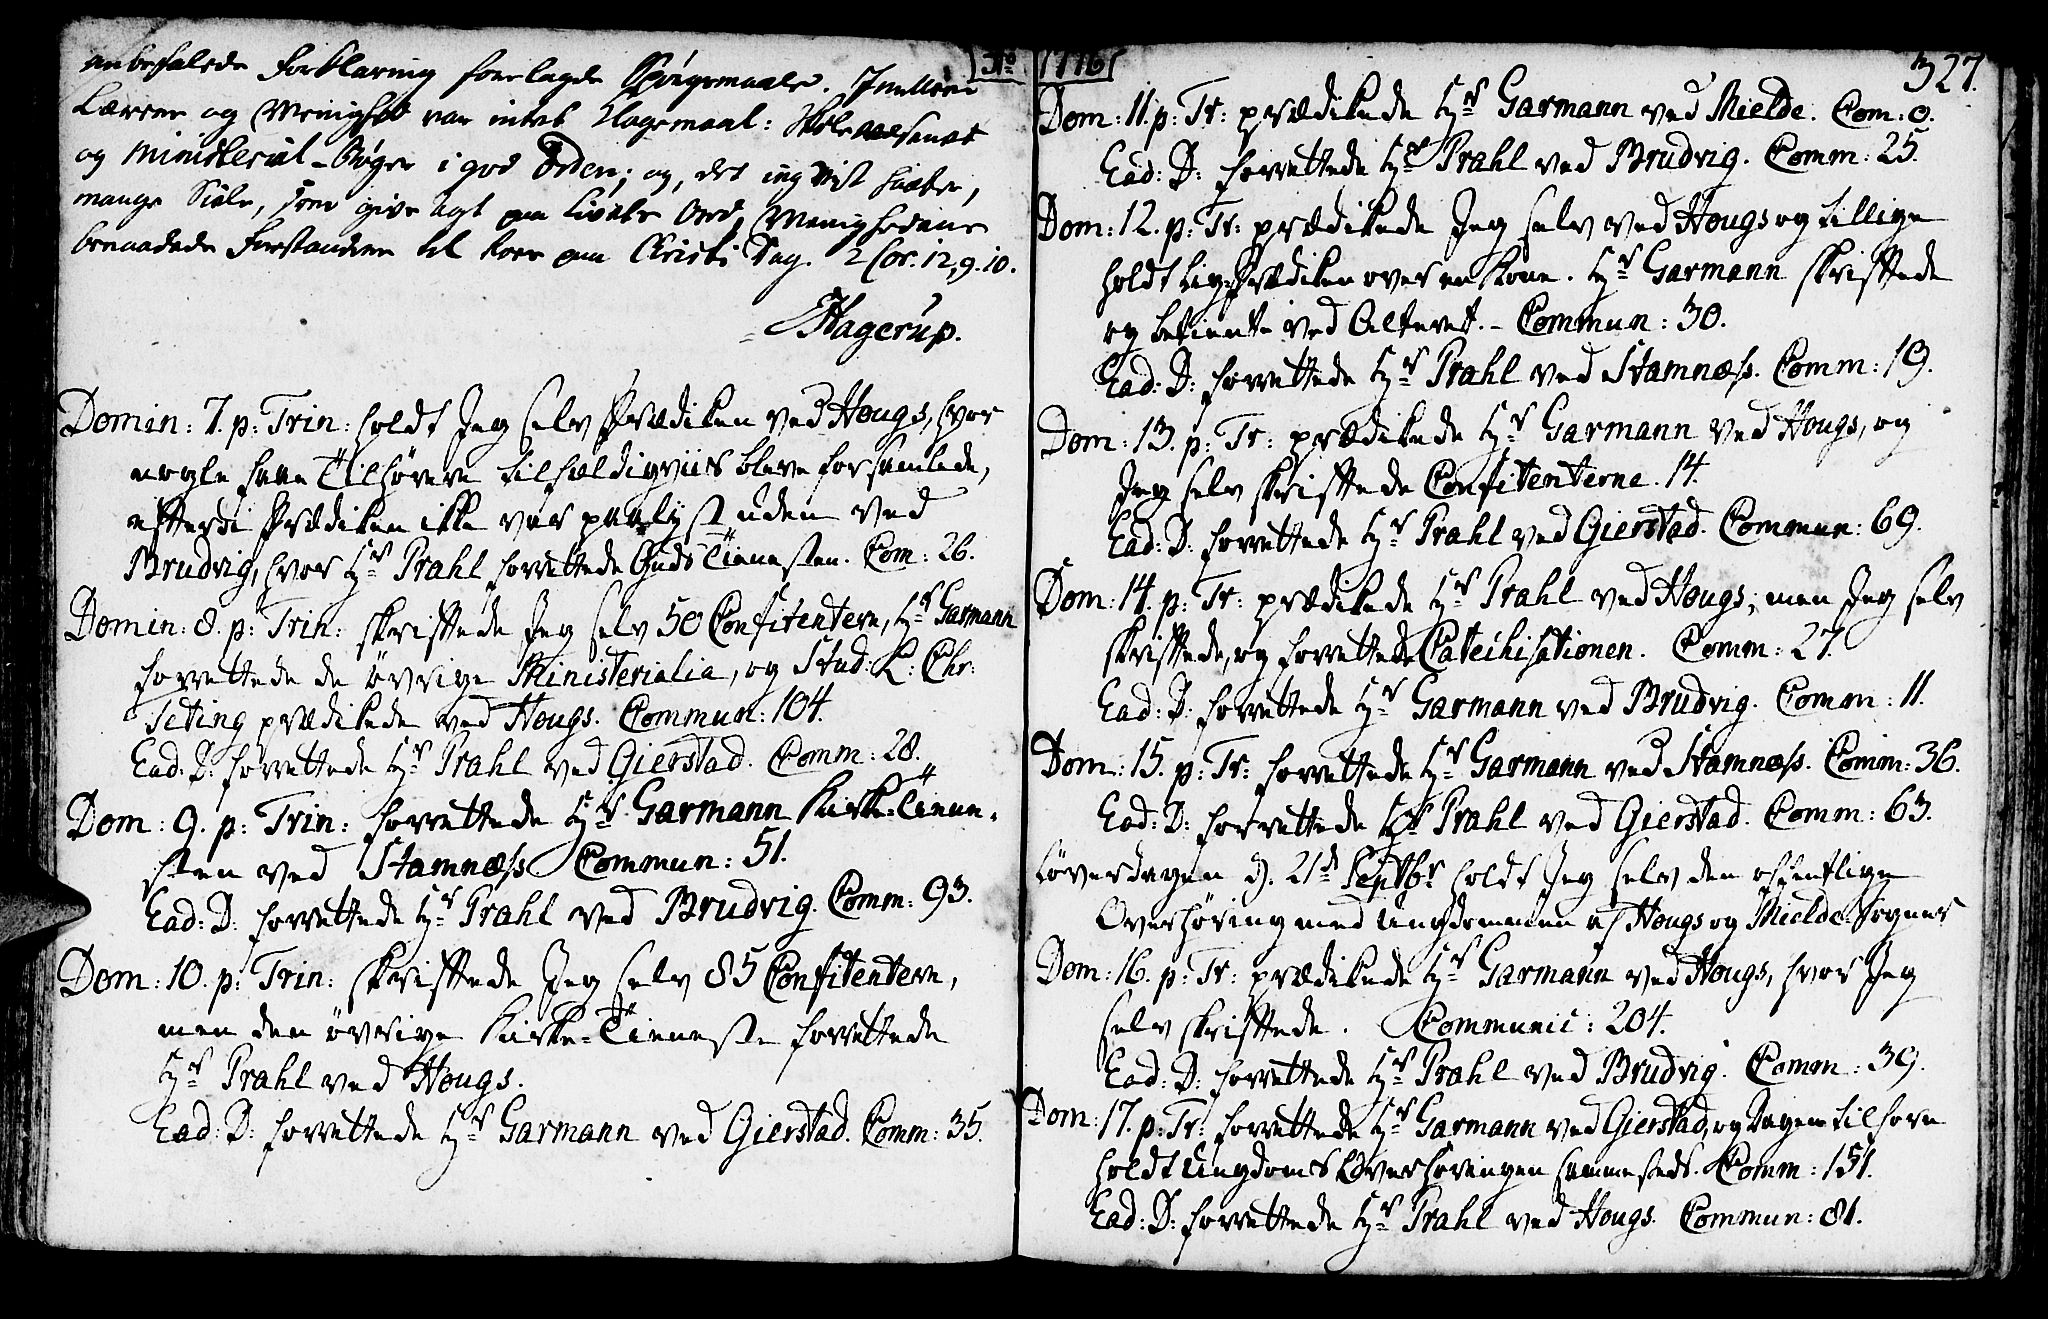 anbefalede Forklaring forelagde Spörgsmaale. Imellem
Lærere og Menighed var intet Klagemaal: Skolevæsenet
og Ministerial-Böger i god Orden; og, det ieg vist haaber,
mange Siele, som give agt paa Livets Ord, Menighedens
benaadede Forstandere til Roes paa Christi Dag. 2 Cor. 12, 9. 10.
EHagerup.
Domin: 7. p: Trin: holdt Jeg selv Prædiken ved Hougs, hvor
nogle faae Tilhörere tilfældigviis bleve forsamlede,
efterdi Prædiken ikke var paalyst uden ved
Brudvig, hvor Hr. Prahl forrettede Guds Tienesten. Com: 26.
Domin: 8. p: Trin: skriftede Jeg selv 50 Confitentere, Hr. Garmann
forrettede de övrige Ministerialia, og Stud: L: Chr:
Teting prædikede ved Hougs. Commun: 104.
Ead: D: forrettede Hr. Prahl ved Gierstad. Comm: 28.
Dom: 9. p: Trin: forrettede Hr. Garmann Kirke-Tiene-
sten ved Stamnæss Commun: 51.
Ead: D: forrettede Hr. Prahl ved Brudvig. Comm: 93.
Dom: 10. p: Trin: skriftede Jeg selv 85 Confitentere,
men den övrige Kirke-Tieneste forrettede
Hr. Prahl ved Hougs.
Ead: D: forrettede Hr. Garmann ved Gierstad. Comm: 35.
Ao 1776
327.
Dom: 11. p: Tr: prædikede Hr. Garmann ved Mielde. Com: 0.
Ead: D: forrettede Hr. Prahl ved Brudvig. Comm: 25.
Dom: 12. p: Tr: prædikede Jeg selv ved Hougs og tillige
holdt Lig-Prædiken over en Kone. Hr. Garmann skriftede
og betiente ved Alteret. - Commun: 30.
Ead: D: forrettede Hr. Prahl ved Stamnæss. Comm: 19.
Dom: 13. p: Tr: prædikede Hr. Garmann ved Hougs, og
Jeg selv skriftede Confitenterne. 14.
Ead: D: forrettede Hr. Prahl ved Gierstad. Commun: 69.
Dom: 14. p: Tr: prædikede Hr. Prahl ved Hougs; men Jeg selv
skriftede, og forrettede Catechisationen. Comm: 27.
Ead: D: forrettede Hr. Garmann ved Brudvig. Comm: 11.
Dom: 15. p: Tr: forrettede Hr. Garmann ved Stamnæss. Comm: 36.
Ead: D: forrettede Hr. Prahl ved Gierstad. Comm: 63.
Löverdagen d. 21de Septbr. holdt Jeg selv den offentlige
Overhöring med Ungdommen af Hougs og Mielde Sogner
Dom: 16. p: Tr: prædikede Hr. Garmann ved Hougs, hvor Jeg
selv skriftede. Communic: 204.
Ead: D: forrettede Hr. Prahl ved Brudvig. Comm: 39.
Dom: 17. p: Tr: forrettede Hr. Garmann ved Gierstad, og Dagen tilforn
holdt Ungdoms Overhöringen sammesteds. Comm: 151.
Ead: D: forrettede Hr. Prahl ved Hougs. Commun: 81.